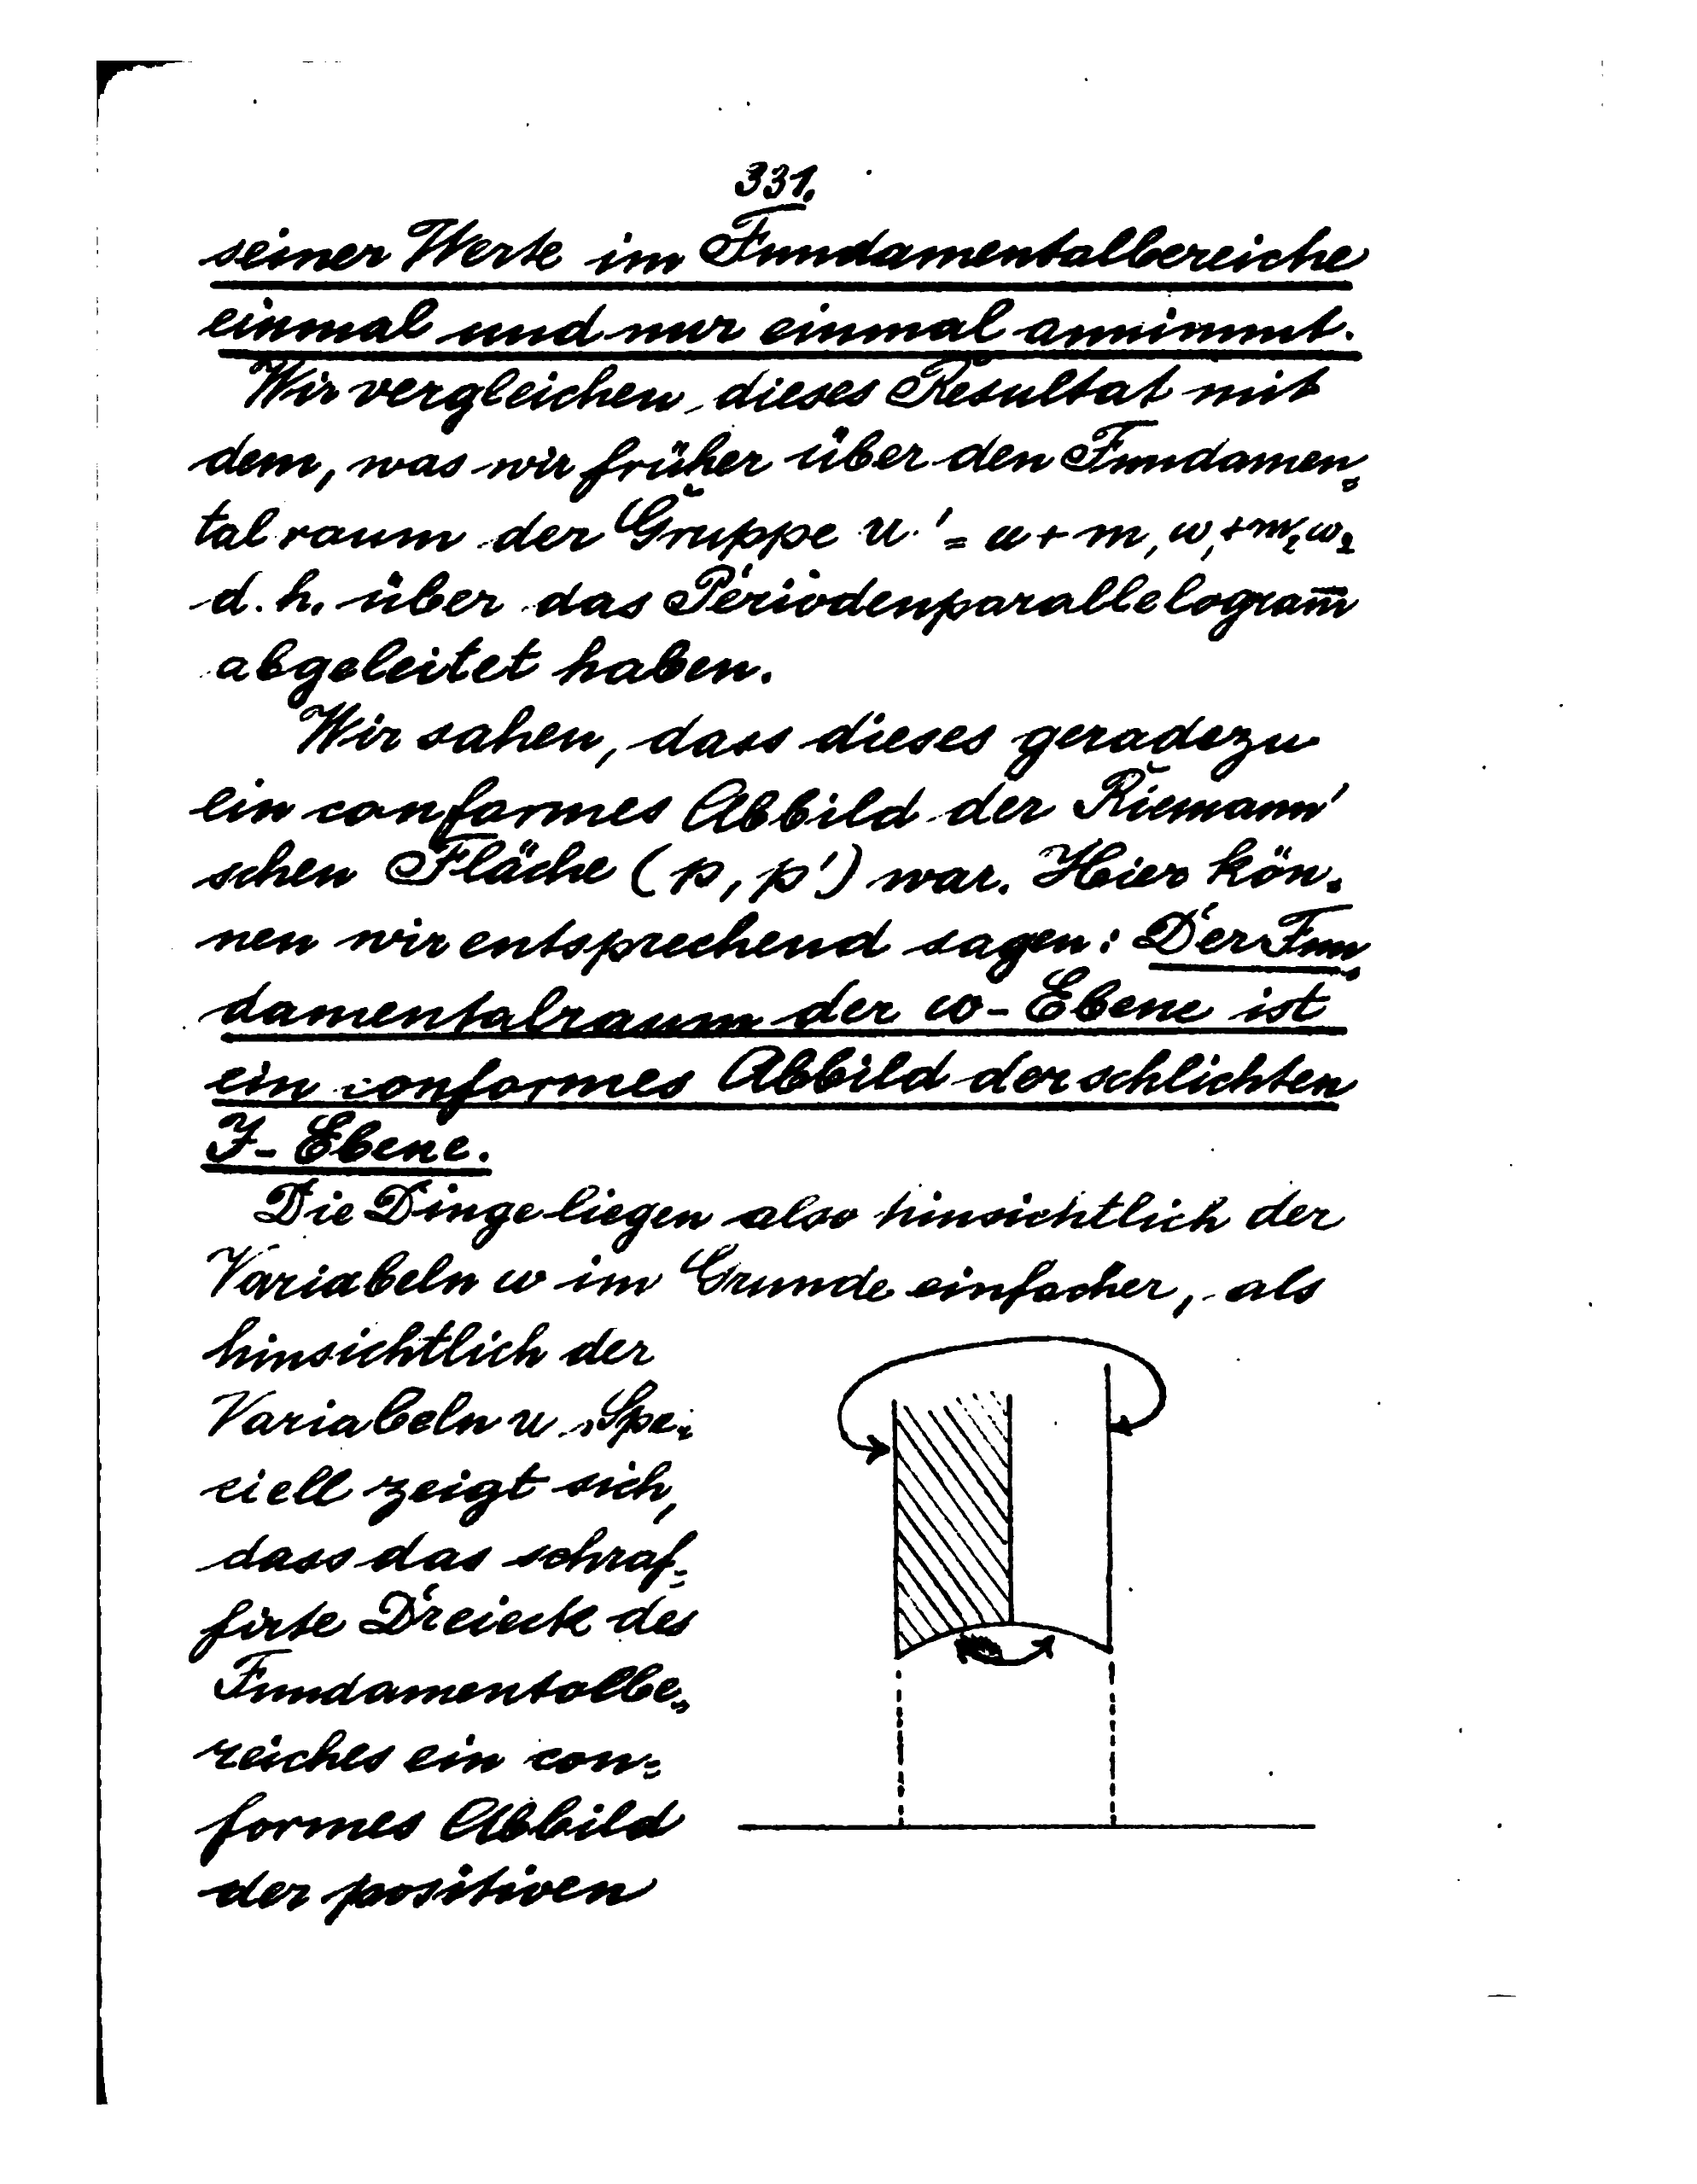 331.
seiner Werte im Fundamentalbereiche
einmal und nur einmal annimmt.
Wir vergleichen dieses Resultat mit
dem, was wir früher über den Fundamen=
talraum der Gruppe u' = u + m₁ω₁ + m₂ω₂
d. h. über das Periodenparallelogram̅
abgeleitet haben.
Wir sahen, dass dieses geradezu
ein conformes Abbild der Riemann'
schen Fläche (p, p') war. Hier kön=
nen wir entsprechend sagen: Der Fun=
damentalraum der ω-Ebene ist
ein conformes Abbild der schlichten
J-Ebene.
Die Dinge liegen also hinsichtlich der
Variabeln ω im Grunde einfacher, als
hinsichtlich der
Variabeln u. Spe=
ciell zeigt sich,
dass das schraf=
firte Dreieck des
Fundamentalbe=
reiches ein con=
formes Abbild
der positiven